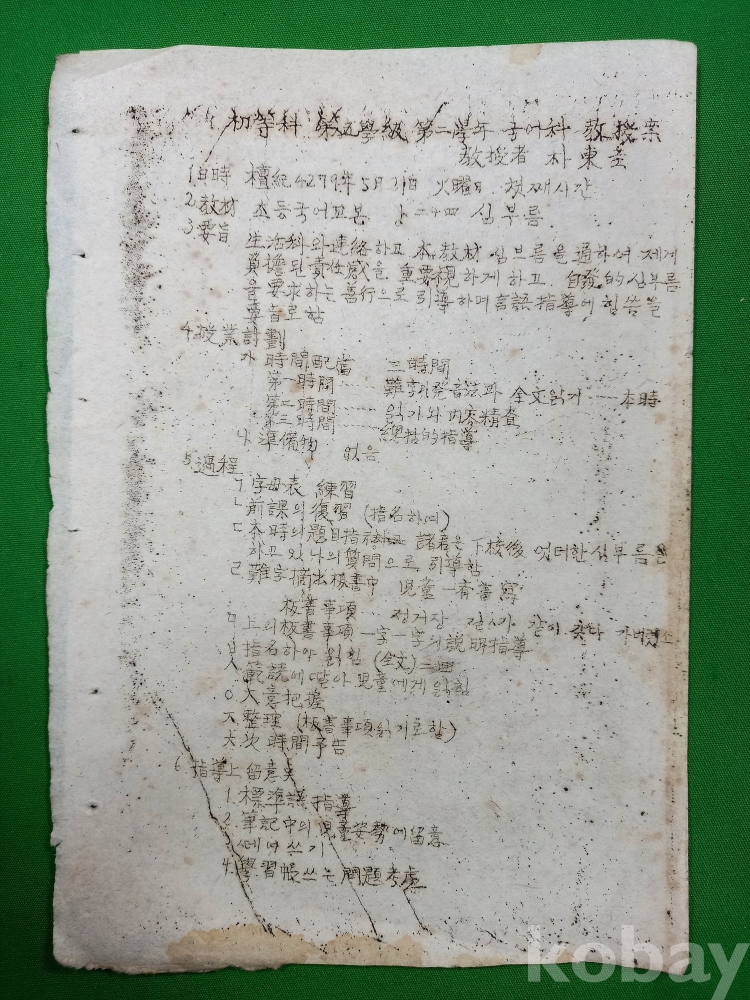 初等科 第五學級 第二學年 국어科 敎授案
敎授者 朴東
1 日時 檀紀4279年5月21日 火曜日 첫째시간
2 敎材 초등국어교본 상 二十四 심부름
3 要旨
生活科와 連絡하고 本敎材 심부름을 通하여 제게
負擔된 責任感을 重要視하게 하고 自發的 심부름
을 要求하는 善行으로 引導하며 言語指導에 힘씀을
要旨로 함
4 授業計劃
가 時間配當 三時間
第一時間 …… 難字發音法과 全文읽기 …… 本時
第二時間 …… 읽기와 內容精査
第三時間 …… 總括的指導
나 準備物 없음
5 過程
ㄱ 字母表 練習
ㄴ 前課의 復習 (指名하여)
ㄷ 本時의 題目指示하고 諸君은 下校後 엇더한 심부름을
하고 있나의 質問으로 引導함
ㄹ 難字摘出 板書中 児童一斉書寫
板書事項 …… 정거장 같이 갔다
ㅁ 上의 板書事項 一字一字의 說明指導
ㅂ 指名하야 읽힘 (全文) 二週
ㅅ 範読에 딸아 児童에게 읽힘
ㅇ 大意把握
ㅈ 整理 (板書事項읽기로함)
ㅊ 次時間予告
6 指導上 留意点
1. 標準語指導
2. 筆記中의 児童姿勢에 留意
띄여쓰기
4. 學習帳쓰는 問題考慮
kobay